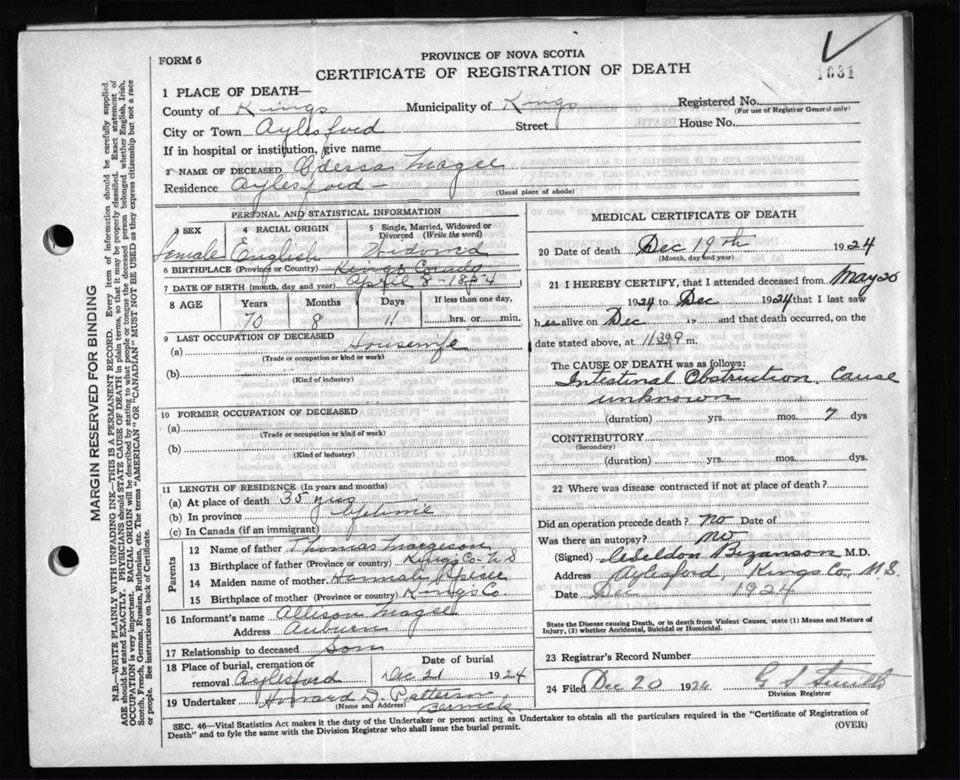 FORM 6
PROVINCE OF NOVA SCOTIA
CERTIFICATE OF REGISTRATION OF DEATH
1031
1 PLACE OF DEATH—
County of Kings Municipality of Kings Registered No.
(For use of Registrar General only)
City or Town Aylesford Street House No.
If in hospital or institution, give name
2 NAME OF DECEASED Odessa Magee
Residence Aylesford —
(Usual place of abode)
PERSONAL AND STATISTICAL INFORMATION
3 SEX 4 RACIAL ORIGIN 5 Single, Married, Widowed or Divorced (Write the word)
Female English Widowed
6 BIRTHPLACE (Province or Country) Kings County
7 DATE OF BIRTH (month, day and year) April 8 - 1854
8 AGE Years Months Days If less than one day,
70 8 11 hrs. or min.
9 LAST OCCUPATION OF DECEASED
(a) Housewife
(Trade or occupation or kind or work)
(b)
(Kind of industry)
10 FORMER OCCUPATION OF DECEASED
(a)
(Trade or occupation or kind of work)
(b)
(Kind of industry)
11 LENGTH OF RESIDENCE (In years and months)
(a) At place of death 35 yrs
(b) In province
(c) In Canada (if an immigrant)
Parents
12 Name of father Thomas Margeson
13 Birthplace of father (Province or country) Kings Co. N S
14 Maiden name of mother Hannah
15 Birthplace of mother (Province or country) Kings Co.
16 Informant's name Allison Magee
Address Auburn
17 Relationship to deceased Son
18 Place of burial, cremation or removal Aylesford Date of burial Dec 21 1924
19 Undertaker Howard D. Patterson
(Name and Address) Berwick
MEDICAL CERTIFICATE OF DEATH
20 Date of death Dec 19th 1924
(Month, day and year)
21 I HEREBY CERTIFY, that I attended deceased from May 20
1924 to Dec 1924 that I last saw
her alive on Dec 19 and that death occurred, on
date stated above, at m.
The CAUSE OF DEATH was as follows:
Intestinal Obstruction. Cause
unknown
(duration) yrs. mos. 7 dys
CONTRIBUTORY
(Secondary)
(duration) yrs. mos. dys.
22 Where was disease contracted if not at place of death?
Did an operation precede death? no Date of
Was there an autopsy? no
(Signed) Bezanson M.D.
Address Aylesford, Kings Co., N.S.
Date Dec 1924
State the Disease causing Death, or in death from Violent Causes, state (1) Means and Nature of
Injury, (2) whether Accidental, Suicidal or Homicidal.
23 Registrar's Record Number
24 Filed Dec 20 192 G S Smith
Division Registrar
SEC. 46—Vital Statistics Act makes it the duty of the Undertaker or person acting as Undertaker to obtain all the particulars required in the "Certificate of Registration of
Death" and to fyle the same with the Division Registrar who shall issue the burial permit. (OVER)
MARGIN RESERVED FOR BINDING
N.B.—WRITE PLAINLY WITH UNFADING INK—THIS IS A PERMANENT RECORD. Every item of information should be carefully supplied.
AGE should be stated EXACTLY. PHYSICIANS should STATE CAUSE OF DEATH in plain terms, so that it may be properly classified. Exact statement of
OCCUPATION is very important. RACIAL ORIGIN will be described by stating to what people or tongue the deceased person belonged whether English, Irish,
Scotch, French, German, Russian, Ruthenian, etc. The terms "AMERICAN" OR "CANADIAN" MUST NOT BE USED as they express citizenship but not a race
or people. See instructions on back of Certificate.